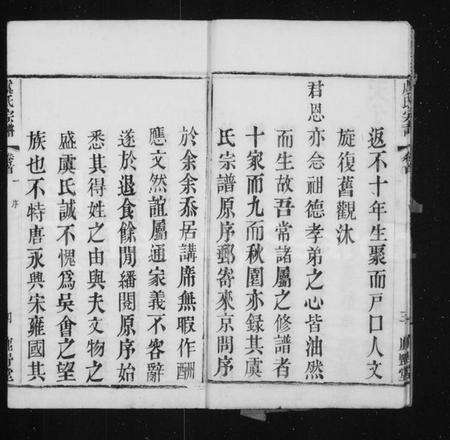 返不十年生聚而戸口人文
旋復舊觀沐
君恩亦念祖德孝弟之心皆油然
而生故吾常諸屬之修譜者
十家而九而秋圃亦錄其虞
氏宗譜原序郵寄來京問序
於余余忝居講席無暇作酬
應文然誼屬通家義不容辭
遂於退食餘閒繙閱原序始
悉其得姓之由與夫文物之
盛虞氏誠不愧爲吳會之望
族也不特唐永興宋雍國其
虞氏宗譜
卷首
序
一